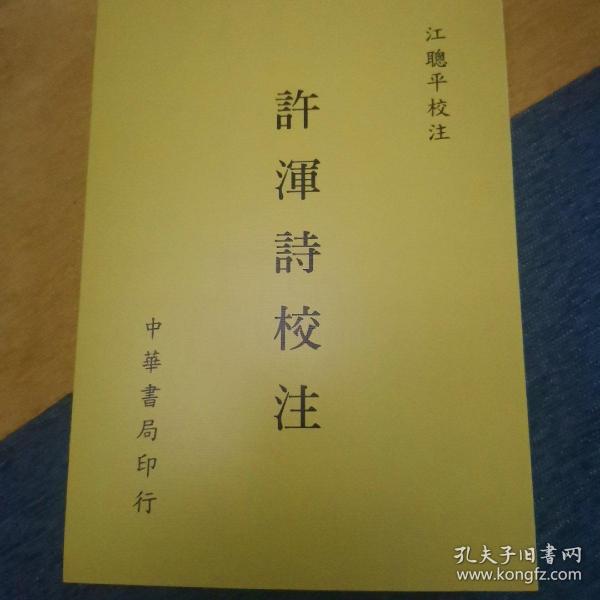 江聰平校注
許渾詩校注
中華書局印行
孔夫子旧书网
www.kongfz.com